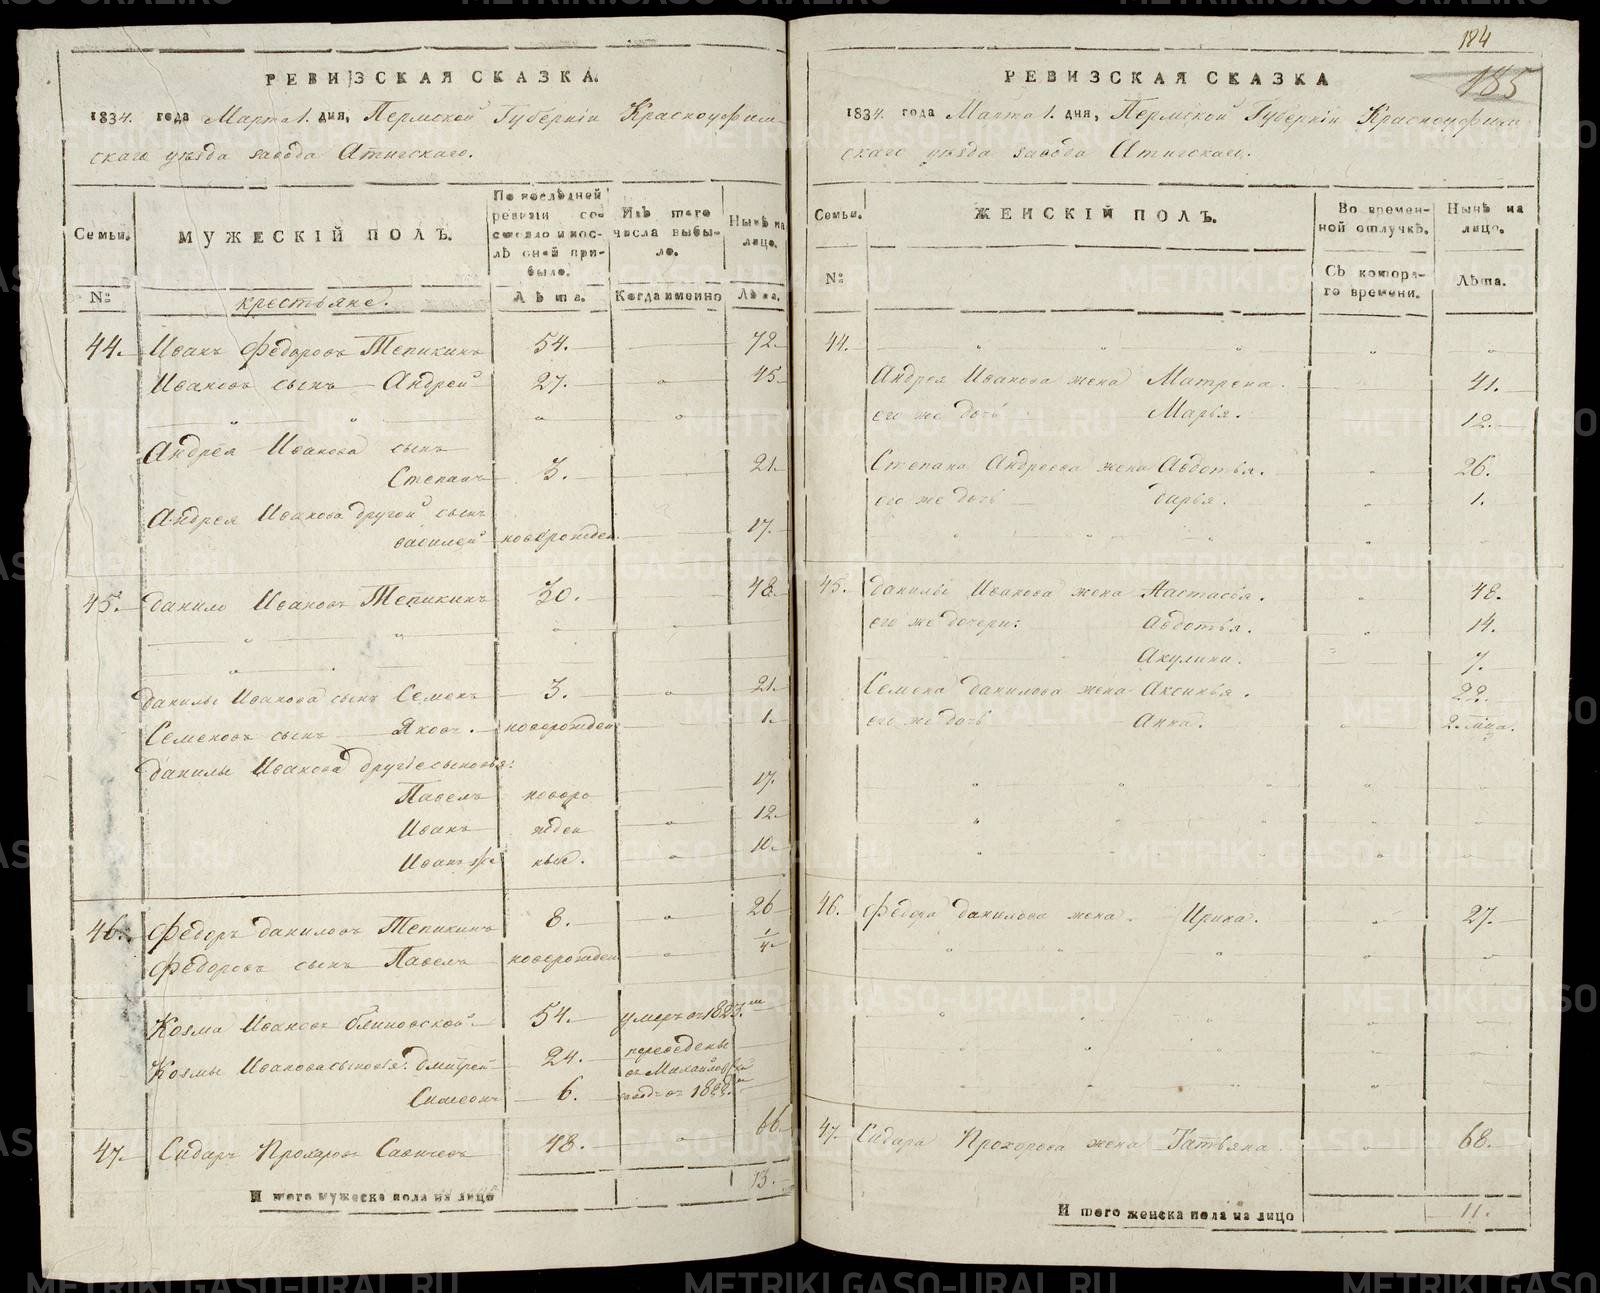 РЕВИЗСКАЯ СКАЗКА.
1834. года Марта 1. дня, Пермской Губерніи Красноуфим
скаго уѣзда завода Атигскаго.
Семьи.
МУЖЕСКІЙ ПОЛЪ.
По послѣдней ревизіи состояло и послѣ оной прибыло.
Изъ того числа выбыло.
Нынѣ на лицо.
№
крестьяне.
Лѣта.
Когда именно
Лѣта.
44. Иванъ Федоровъ Тепикинъ 54. 72.
Ивановъ сынъ Андрей 27. 45
Андрея Иванова сынъ
Степанъ 3. 21.
Андрея Иванова другой сынъ
василей новорожден. 17.
45. данило Ивановъ Тепикинъ 30. 48.
данилы Иванова сынъ Семенъ 3. 21.
Семеновъ сынъ Яковъ. новорожден 1.
данилы Иванова другіе сыновья:
Павелъ новоро 17.
Иванъ жден 12.
Иванъ же ные. 10.
46. Федоръ даниловъ Тепикинъ 8. 26
Федоровъ сынъ Павелъ новорожден 1/4
Козма Ивановъ блиновской 54. умеръ въ 1823.м
Козмы Иванова сыновья: дмитрей 24. переведены
въ Михайловской
Симеонъ 6. завод въ 1822.м
47. Сидаръ Прохоровъ Савичевъ 48. 66.
Итого мужеска пола на лицо 13.
184
185
РЕВИЗСКАЯ СКАЗКА
1834. года Марта 1. дня, Пермской Губерніи Красноуфим
скаго уѣзда завода Атигскаго.
Семьи.
ЖЕНСКІЙ ПОЛЪ.
Во временной отлучкѣ.
Нынѣ на лицо.
№
Съ котораго времени.
Лѣта.
44.
Андрея Иванова жена Матрена. 41.
его же дочь Марья. 12.
Степана Андреева жена Авдотья. 26.
его же дочь дарья. 1.
45. данилы Иванова жена Настасья. 48.
его же дочери: Авдотья. 14.
Акулина. 7.
Семена данилова жена Аксинья. 22.
его же дочь Анна. 2. мца.
46. Федора данилова жена. Ирина. 27.
47. Сидара Прохорова жена Татьяна. 68.
Итого женска пола на лицо 11.
METRIKI.GASO-URAL.RU